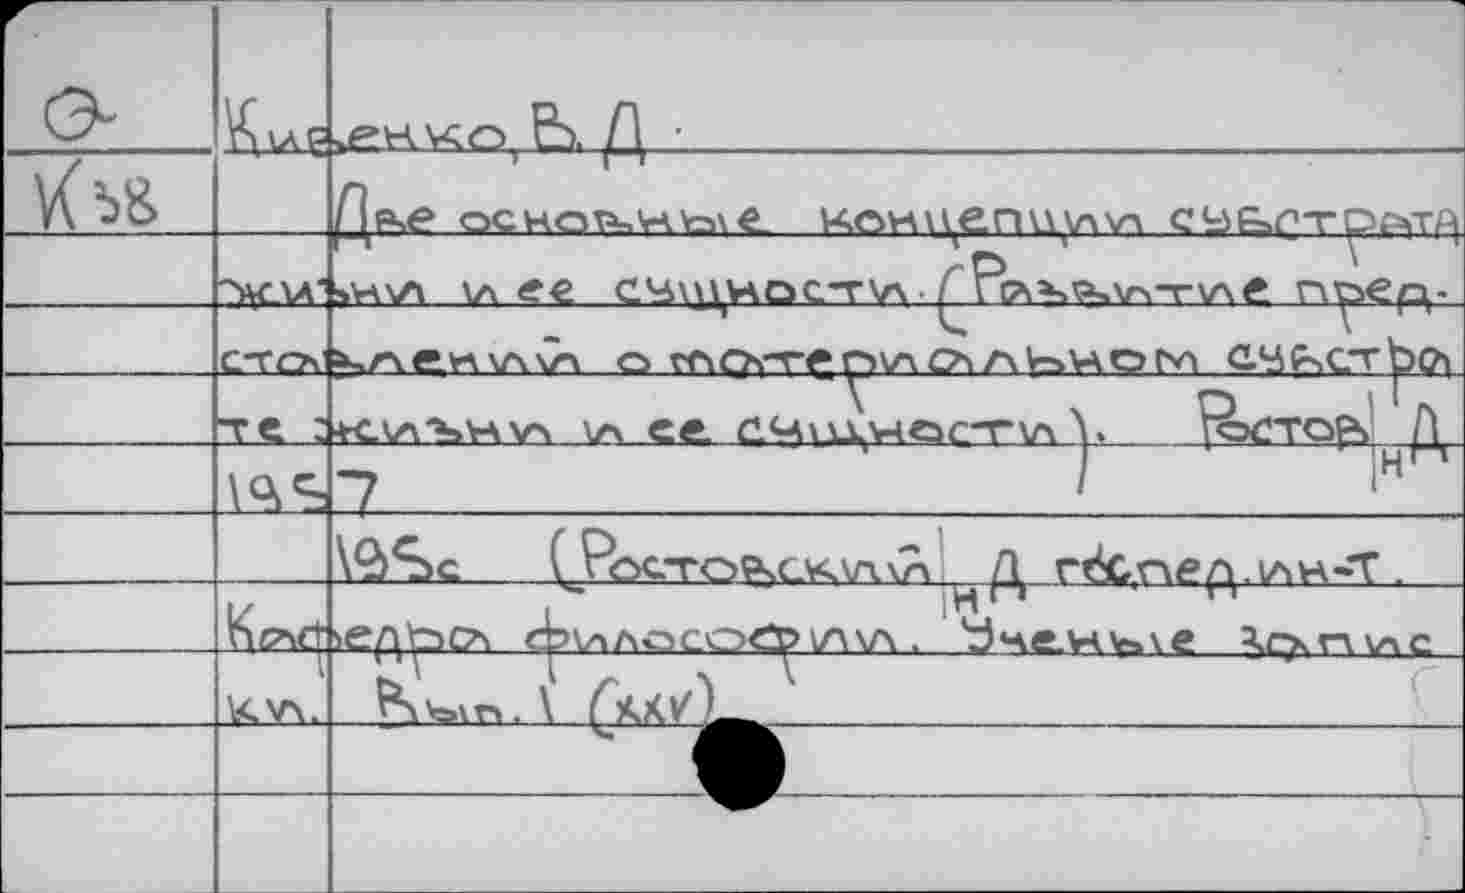 Э-
Кириенко, В. Д.
К38
Две основные концепции субстрата
жизни и ее сущности. (Развитие пред-
ставлений о материальном субстра
те жизни и ее сущности). Ростов н/Д
1957
195с (Ростовский н/Д гос.пед.ин-т.
Кафедра философии. Ученые запис
ки. Вып. 1 (XXV)